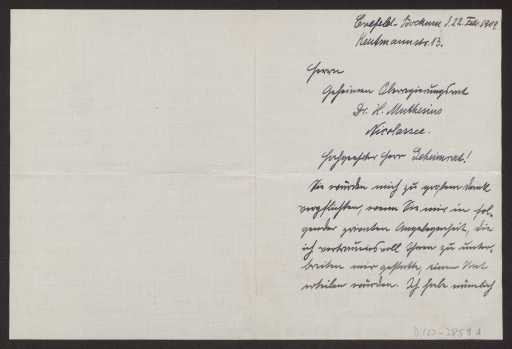 Crefeld-Bockum d. 22. Feb. 1919
Rentmannstr. 13.
Herrn
Geheimen Oberregierungsrat
Dr. H. Muthesius
Nicolassee.
Hochgeehrter Herr Geheimrat!
Sie würden mich zu großem Dank
verpflichten, wenn Sie mir in fol-
gender privaten Angelegenheit, die
ich vertrauensvoll Ihnen zu unter-
breiten mir gestatte, einen Rat
erteilen würden. Ich habe nämlich